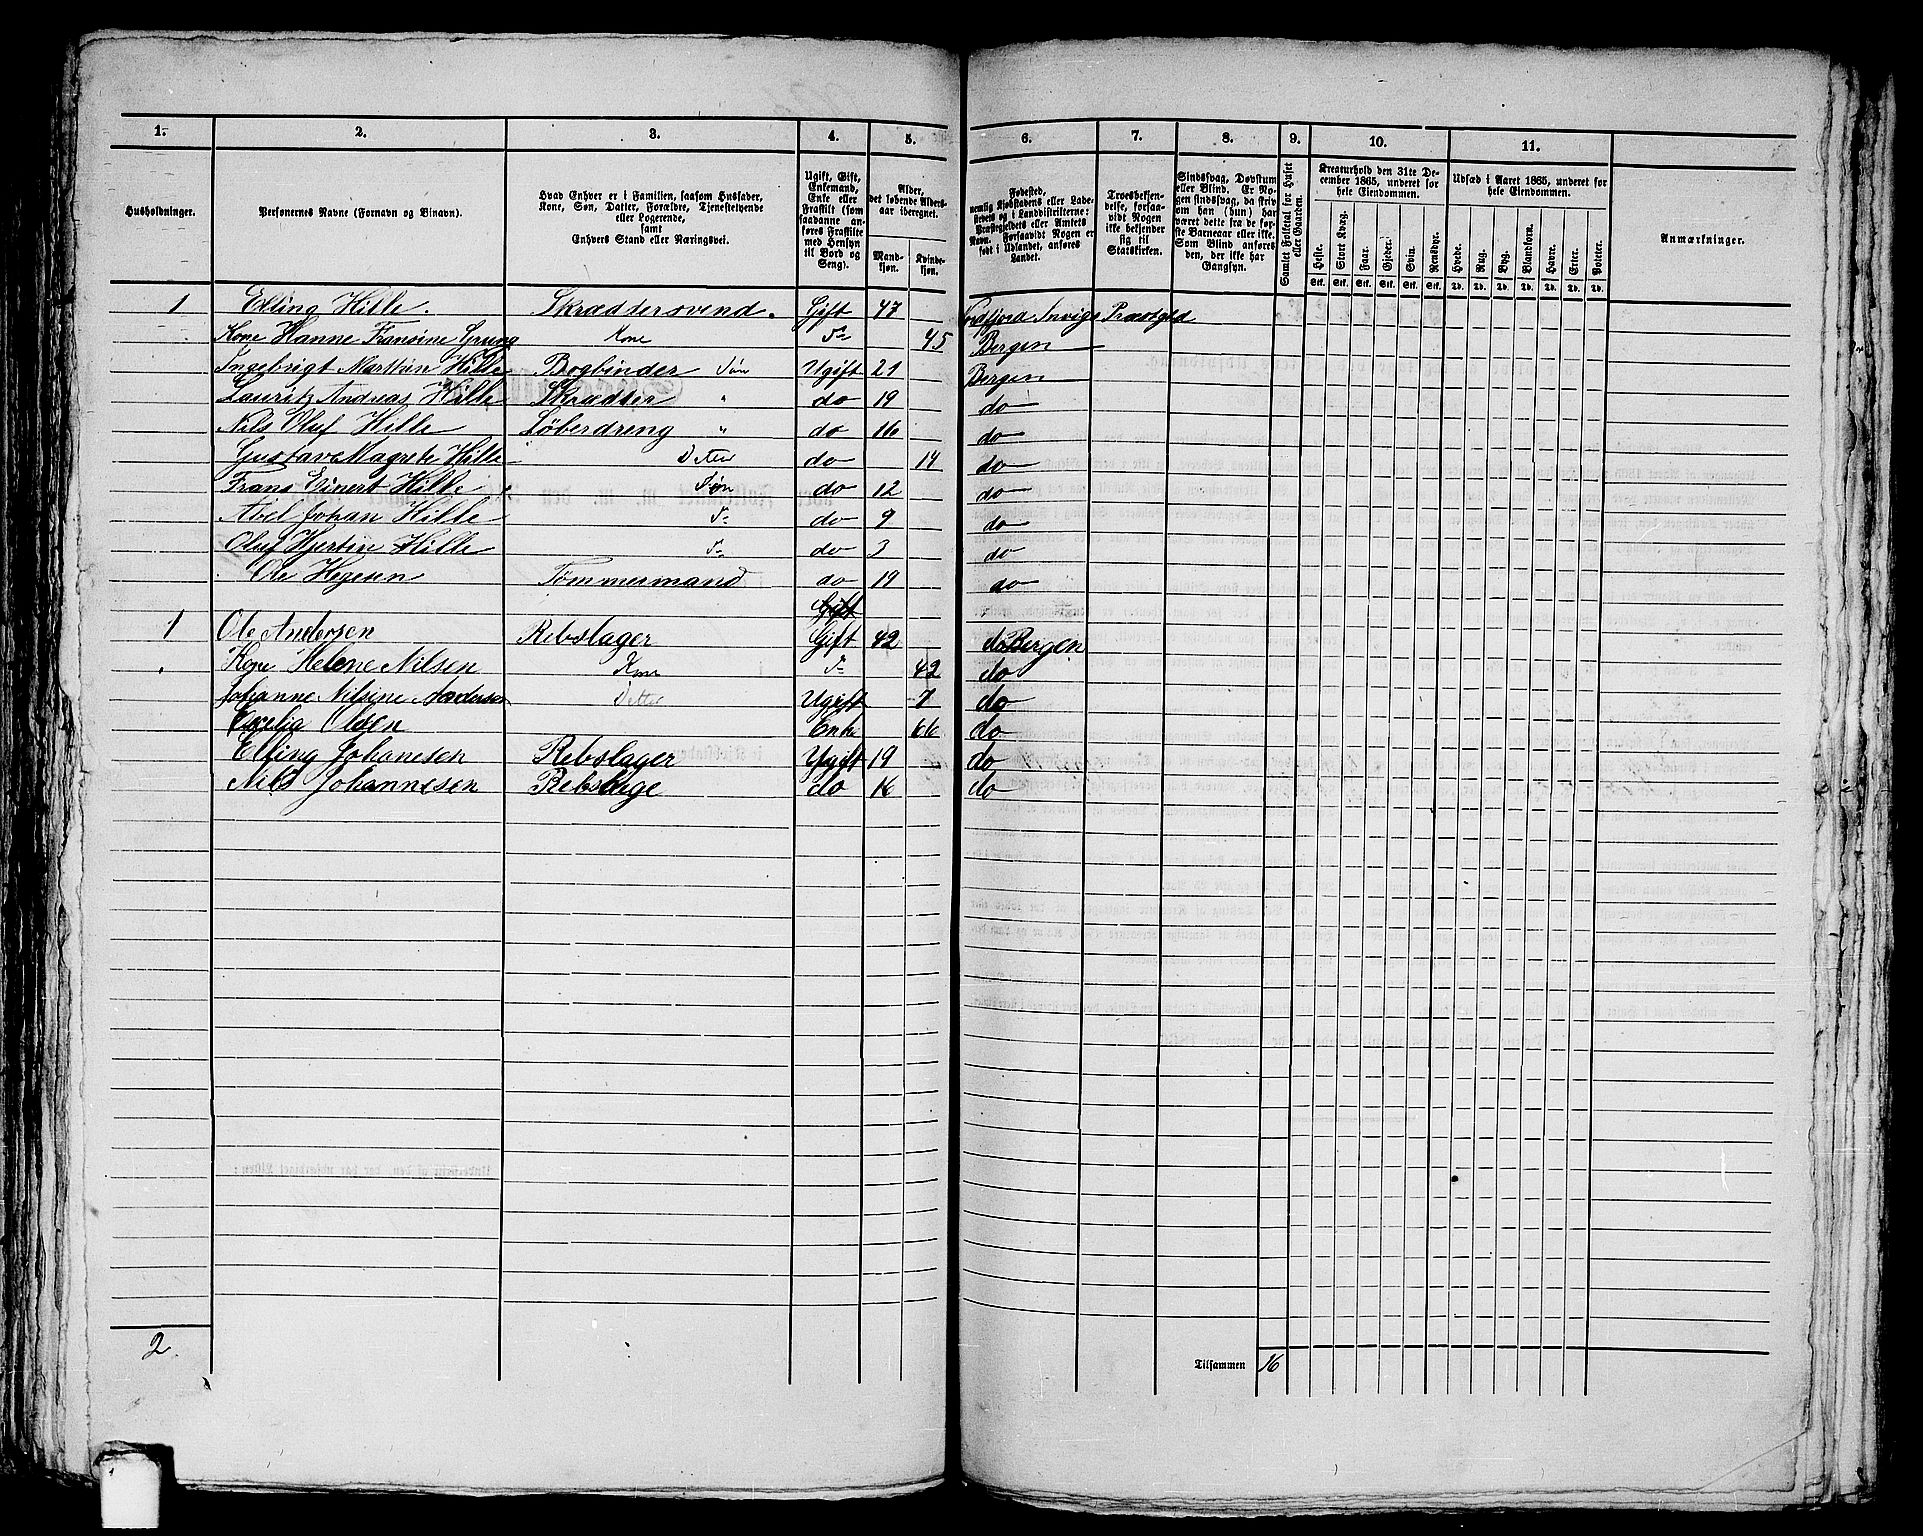 1. 2. 3. 4. 5. 6. 7. 8. 9. 10. 11.
Husholdninger.
Personernes Navne (Fornavn og Binavn).
Hvad Enhver er i Familien, saasom Husfader,
Kone, Søn, Datter, Forældre, Tjenestetyende
eller Logerende,
samt
Enhvers Stand eller Næringsvei.
Ugift, Gift,
Enkemand,
Enke eller
Fraskilt (som
saadanne an-
føres Fraskilte
med Hensyn
til Bord og
Seng).
Alder,
det løbende Alders-
aar iberegnet.
Mand-
kjøn.
Kvinde-
kjøn.
Fødested,
nemlig Kjøbstadens eller Lade-
stedets og i Landdistrikterne:
Præstegjeldets eller Amtets
Navn. Forsaavidt Nogen er
født i Udlandet, anføres
Landet.
Troesbekjen-
delse, forsaa-
vidt Nogen
ikke bekjender
sig til
Statskirken.
Sindssvag, Døvstum
eller Blind. Er No-
gen sindssvag, da skriv
om han (hun) har
været dette fra de før-
ste Barneaar eller ikke.
Som Blind anføres
den, der ikke har
Gangsyn.
Samlet Folketal for Huset
eller Gaarden.
Kreaturhold den 31te De-
cember 1865, underet for
hele Eiendommen.
Heste. Stort Kvæg. Faar. Gjeder. Svin. Rensdyr.
Stk. Stk. Stk. Stk. Stk. Stk.
Udsæd i Aaret 1865, underet for
hele Eiendommen.
Hvede. Rug. Byg. Blandkorn. Havre. Erter. Poteter.
Td. Td. Td. Td. Td. Td. Td.
Anmærkninger.
1 Elling Hille. Skræddersvend. Gift 47 Nordfjord Invigs Præstgjd
Kone Hanne Fransine Grung Kone do 45 Bergen
Ingebrigt Marthin Hille Bogbinder Søn Ugift 21 Bergen
Lauritz Andreas Hille Skrædder " do 19 do
Nils Oluf Hille Løberdreng " do 16 do
Gustava Magrete Hille Detter do 14 do
Frans Einert Hille Søn do 12 do
Abel Johan Hille do do 9 do
Oluf Hjertin Hille do do 3 do
Ole Hegesen Tømmermand do 19 do
Gift
1 Ole Andersen Rebslager Gift 42 do Bergen
Kone Helene Nilsen Kone do 42 do
Johanne Nilsine Andersen Detter Ugift 7 do
Olsen Enke 66 do
Elling Johanesen Rebslager Ugift 19 do
Nils Johannesen Rebslage do 16 do
2.
Tilsammen 16